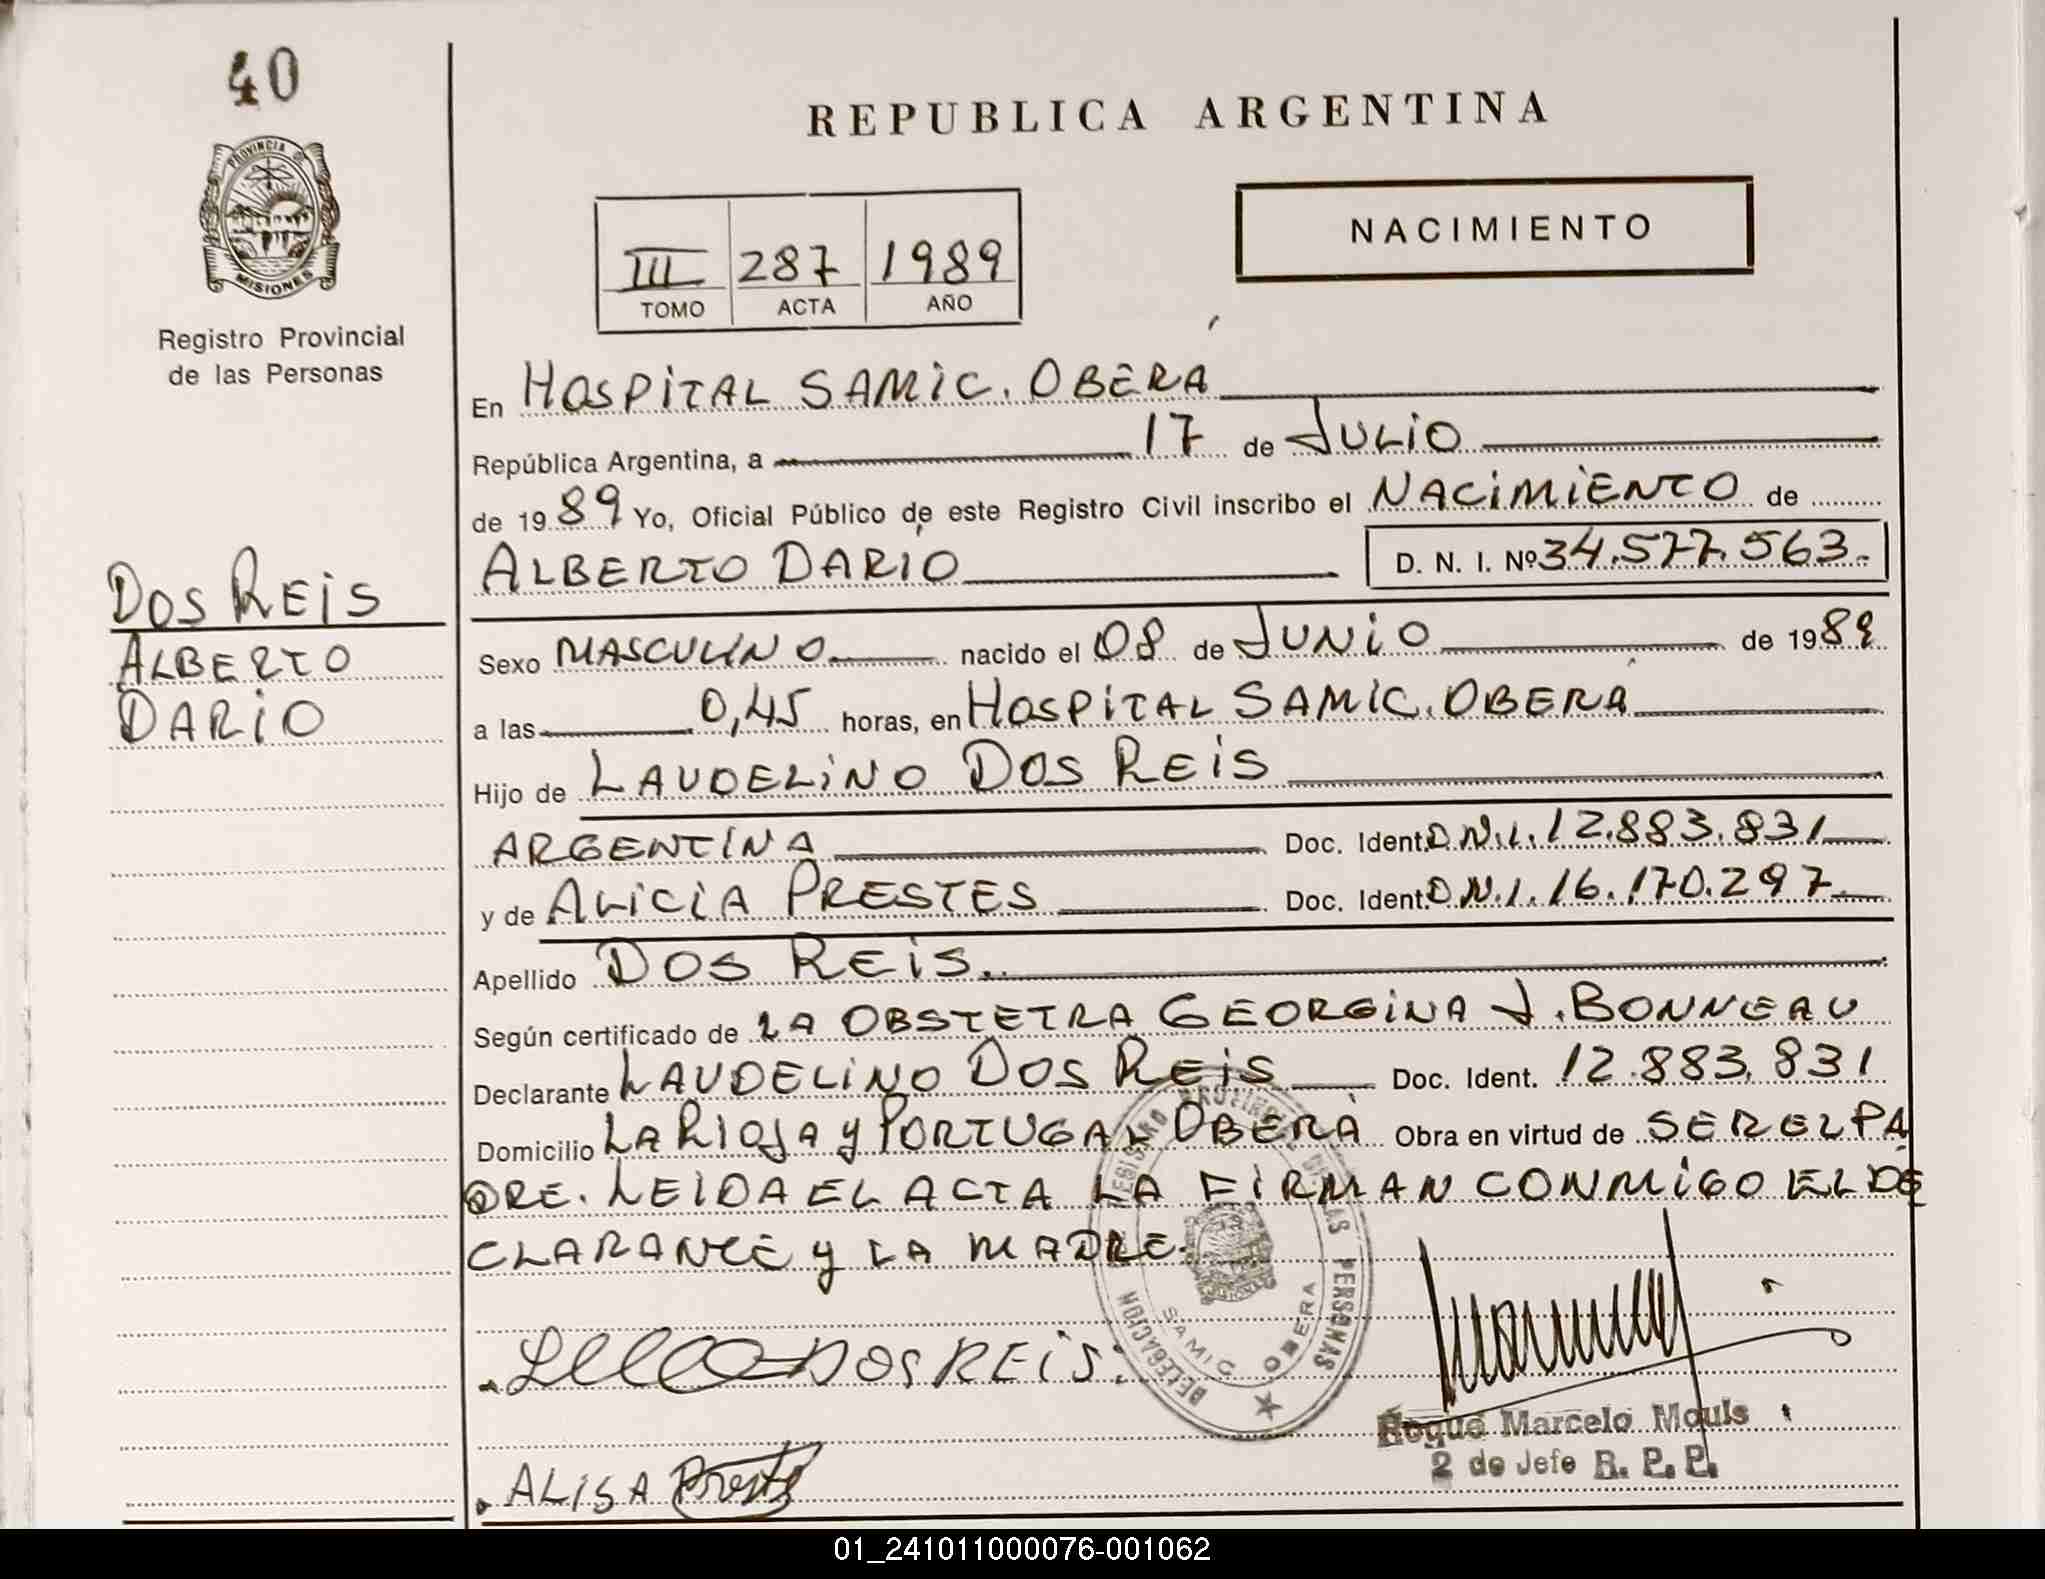 40
PROVINCIA DE
MISIONES
Registro Provincial
de las Personas
DOS REIS
ALBERTO
DARIO
REPUBLICA ARGENTINA
III 287 1989
TOMO ACTA AÑO
NACIMIENTO
En HOSPITAL SAMIC. OBERÁ
República Argentina, a 17 de JULIO
de 1989 Yo, Oficial Público de este Registro Civil inscribo el NACIMIENTO de
ALBERTO DARIO D. N. I. Nº 34.577.563.
Sexo MASCULINO nacido el 08 de JUNIO de 1989
a las 0,45 horas, en HOSPITAL SAMIC. OBERÁ
Hijo de LAUDELINO DOS REIS
ARGENTINA Doc. Ident. D.N.I. 12.883.831
y de ALICIA PRESTES Doc. Ident. D.N.I. 16.170.297
Apellido DOS REIS.
Según certificado de LA OBSTETRA GEORGINA J. BONNEAU
Declarante LAUDELINO DOS REIS Doc. Ident. 12.883.831
Domicilio LA RIOJA y PORTUGAL OBERÁ Obra en virtud de SER EL PA
DRE. LEIDA EL ACTA LA FIRMAN CONMIGO EL DE
CLARANTE y LA MADRE.
DELEGACION REGISTRO PROVINCIAL DE LAS PERSONAS
SAMIC OBERA
DOS REIS
Roque Marcelo Mouls
2 do Jefe R. P. P.
ALISA Prests
01_241011000076-001062